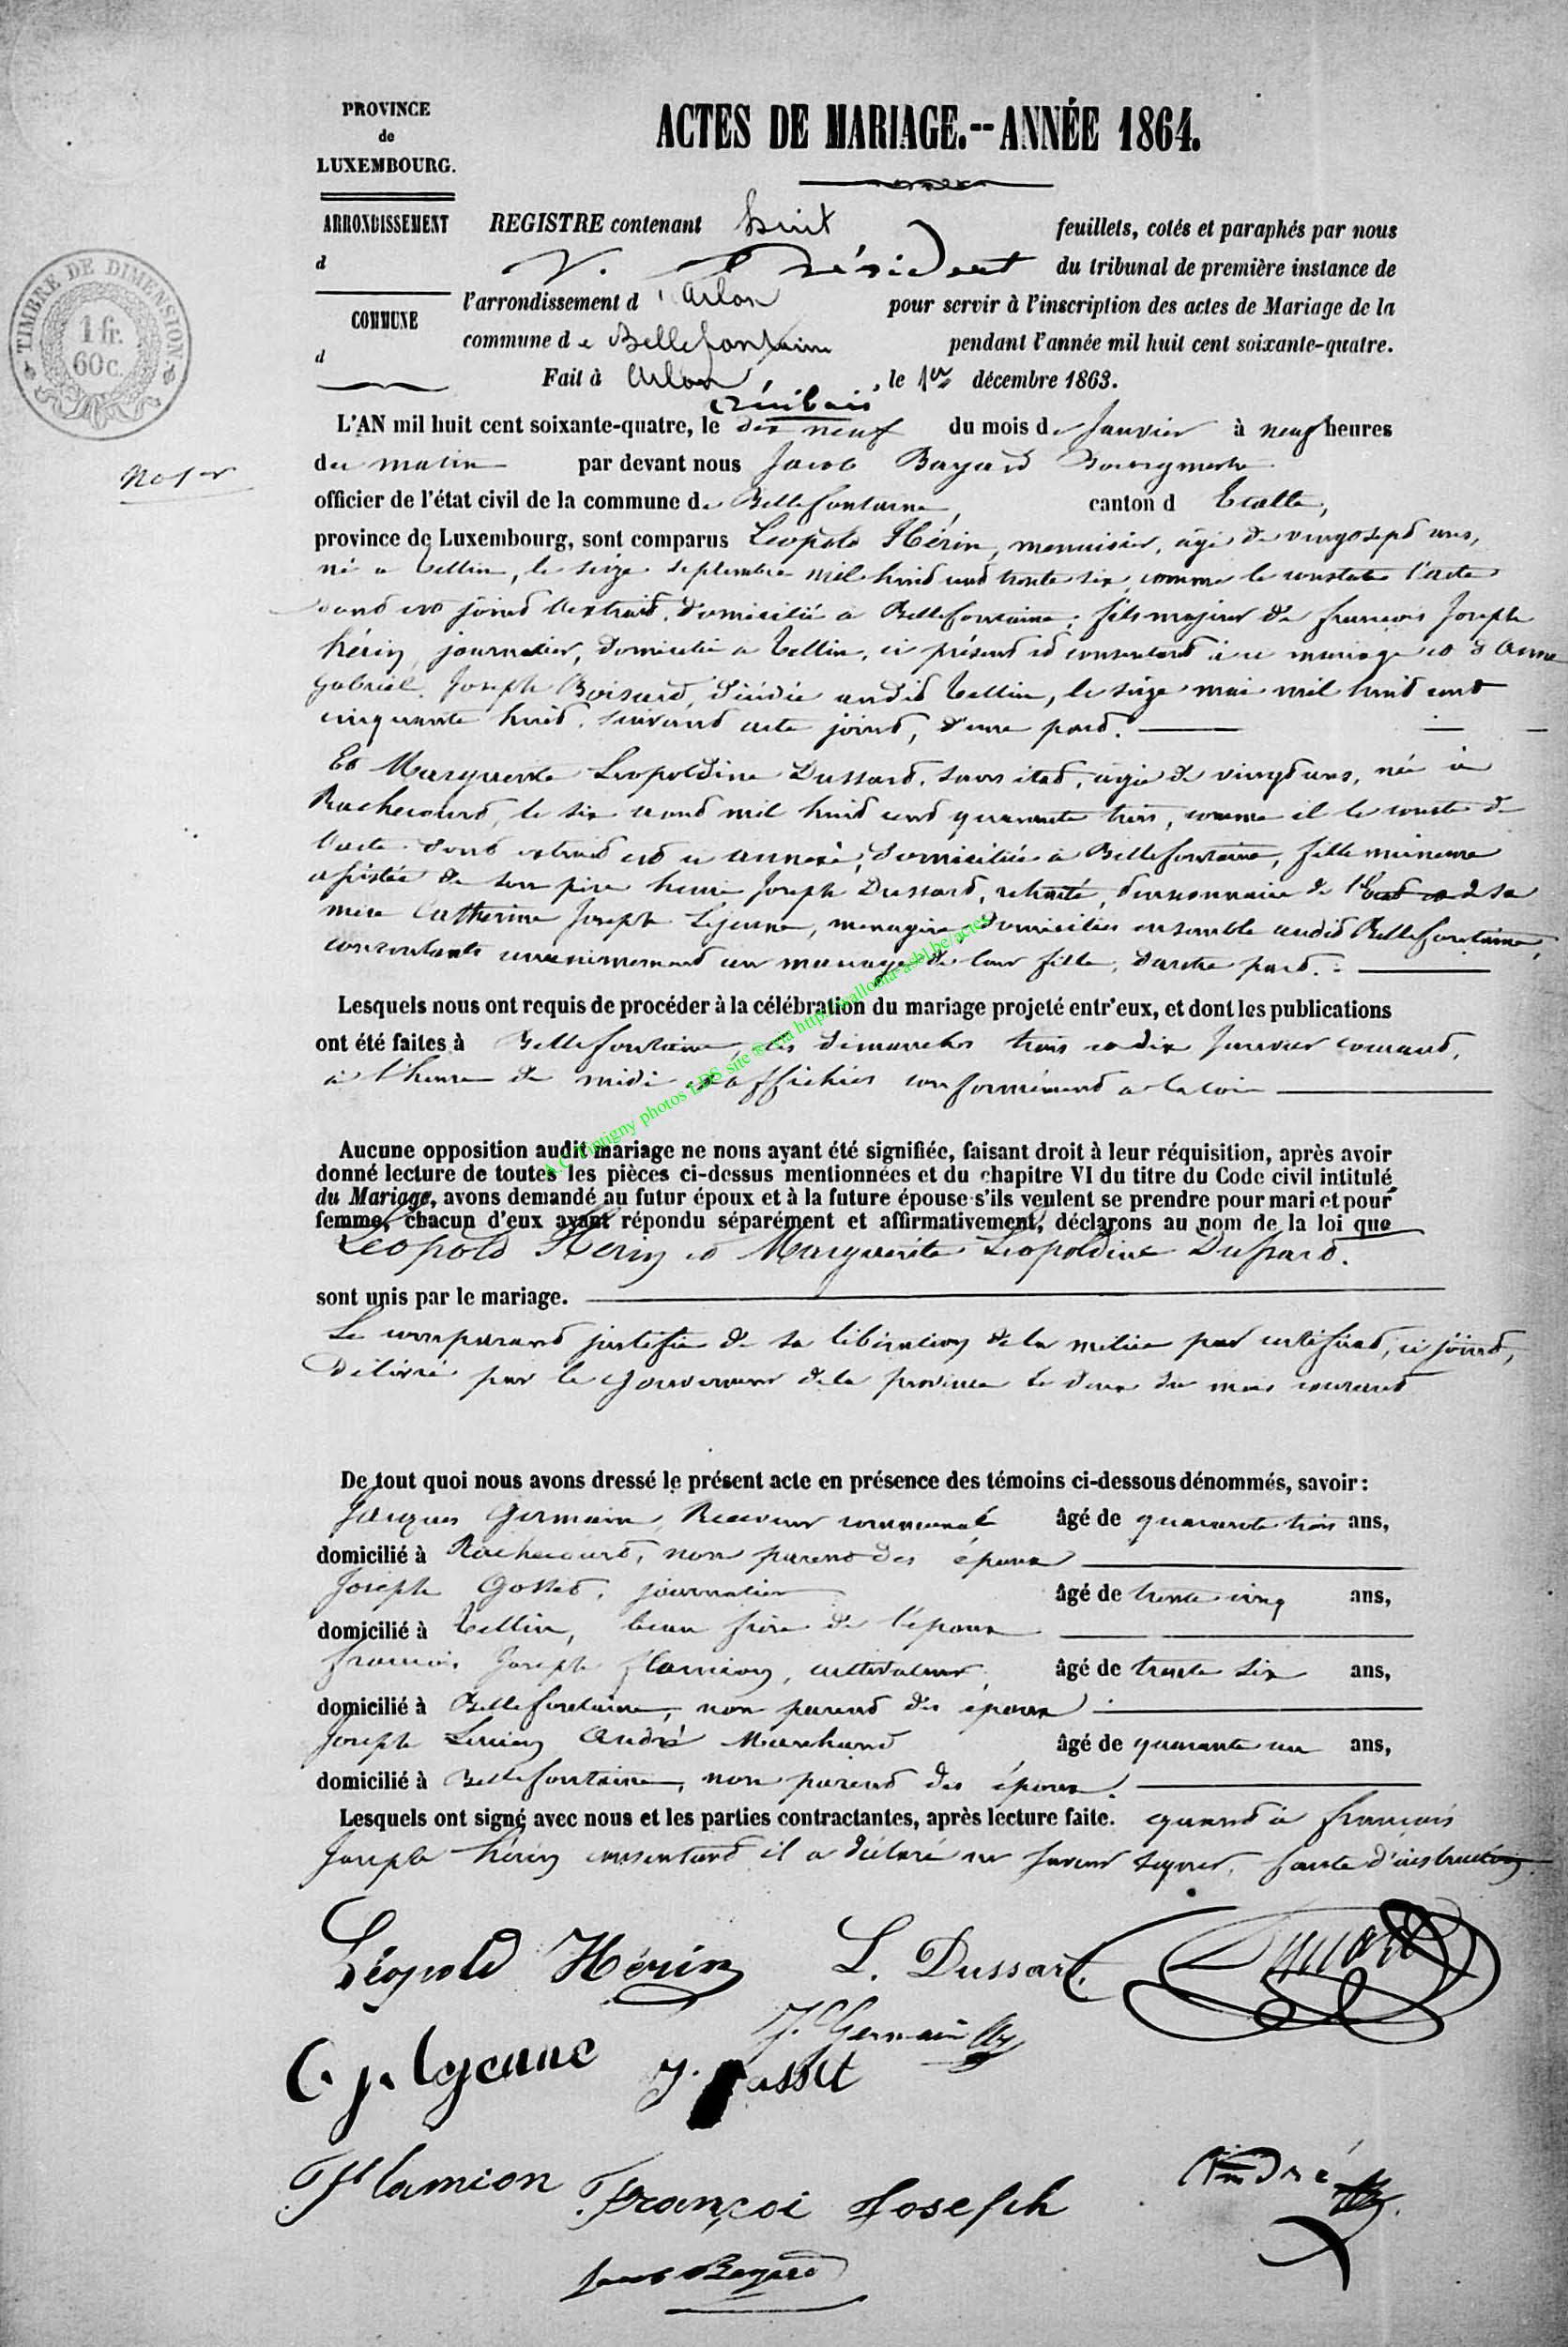 PROVINCE
de
LUXEMBOURG.
ACTES DE MARIAGE.--ANNÉE 1864.
ARRONDISSEMENT
d
COMMUNE
d
TIMBRE DE DIMENSION.
1 fr.
60 c.
REGISTRE contenant huit feuillets, cotés et paraphés par nous
V. Président du tribunal de première instance de
l'arrondissement d'Arlon pour servir à l'inscription des actes de Mariage de la
commune de Bellefontaine pendant l'année mil huit cent soixante-quatre.
Fait à Arlon, le 1er décembre 1863.
L'AN mil huit cent soixante-quatre, le dix neuf du mois de Janvier à neuf heures
No 1er
du matin par devant nous Jacob Bayard Bourgmestre
officier de l'état civil de la commune de Bellefontaine, canton d Etalle,
province de Luxembourg, sont comparus Léopold Hérin, menuisier, âgé de vingt sept ans,
né a Tellin, le seize septembre mil huit cent trente six, comme le constate l'acte
dont est joint l'extrait, domicilié a Bellefontaine; fils majeur de françois Joseph
hérin, journalier, domicilié a Tellin, ci présent et consentant à ce mariage et d'Anne
Gabriel Joseph Boisard, décédée audit Tellin, le seize mai mil huit cent
cinquante huit, suivant acte joint, d'une part.
Et Marguerite Léopoldine Dussard, sans état, âgée de vingt ans, née à
Rachecourt, le six aout mil huit cent quarante trois, comme il le conste de
l'acte dont extrait est ci annexé, domiciliée a Bellefontaine, fille mineure
assistée de son père henri Joseph Dussard, retraité, de et de sa
mère Catherine Joseph Lejeune, menagère, domiciliés ensemble audit Bellefontaine,
consentants au mariage de leur fille, d'autre part.
Lesquels nous ont requis de procéder à la célébration du mariage projeté entr'eux, et dont les publications
ont été faites à Bellefontaine, les dimanches trois et dix Janvier courant,
à l'heure de midi et affichées conformément a la loi
Aucune opposition audit mariage ne nous ayant été signifiée, faisant droit à leur réquisition, après avoir
donné lecture de toutes les pièces ci-dessus mentionnées et du chapitre VI du titre du Code civil intitulé
du Mariage, avons demandé au futur époux et à la future épouse s'ils veulent se prendre pour mari et pour
femme, chacun d'eux ayant répondu séparément et affirmativement, déclarons au nom de la loi que
Léopold Hérin et Marguerite Léopoldine Dussard.
sont unis par le mariage.
Le comparant justifie de sa libération de la milice par certificat, ci joint,
Délivré par le Gouverneur de la province le deux du mois courant
De tout quoi nous avons dressé le présent acte en présence des témoins ci-dessous dénommés, savoir:
Jacques Germain, Receveur communal âgé de quarante trois ans,
domicilié à Rachecourt, non parent des époux
Joseph Gosset, journalier âgé de trente cinq ans,
domicilié à Tellin, beau frère de l'époux
françois Joseph flamion, cultivateur, âgé de trente six ans,
domicilié à Bellefontaine, non parent des époux
Joseph Lucien André Marchand âgé de quarante un ans,
domicilié à Bellefontaine, non parent des époux.
Lesquels ont signé avec nous et les parties contractantes, après lecture faite. quand à françois
Joseph hérin consentant il a déclaré ne savoir signer, faute d'instruction.
Léopold Hérin L. Dussart. Dussard
J. Germain
C. j. lejeune J. Gosset
Flamion François Joseph André
Jacob Bayard
A.C. Tintigny photos LDS site © via http://wallonia-asbl.be/actes